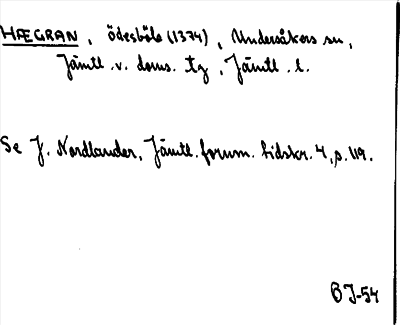 HÆGRAN, ödesböle (1374), Undersåkers sn,
Jämtl. v. doms. tg, Jämtl. l.
Se J. Nordlander, Jämtl. fornm. tidskr. 4, s. 119.
BJ-54